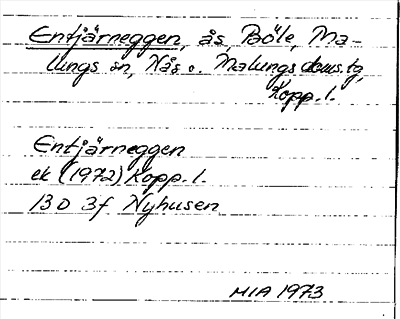 Entjärneggen, ås, Böle, Ma-
lungs sn, Nås o. Malungs doms.tg,
Kopp. l.
Entjärneggen
ek (1972) Kopp. l.
13 D 3f Nyhusen
MIA 1973